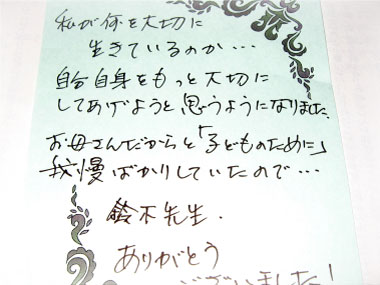 私が何を大切に
生きているのか…
自分自身をもっと大切に
してあげようと思うようになりました。
お母さんだからと「子どものために」
我慢ばかりしていたので…
鈴木先生.
ありがとう
ございました!